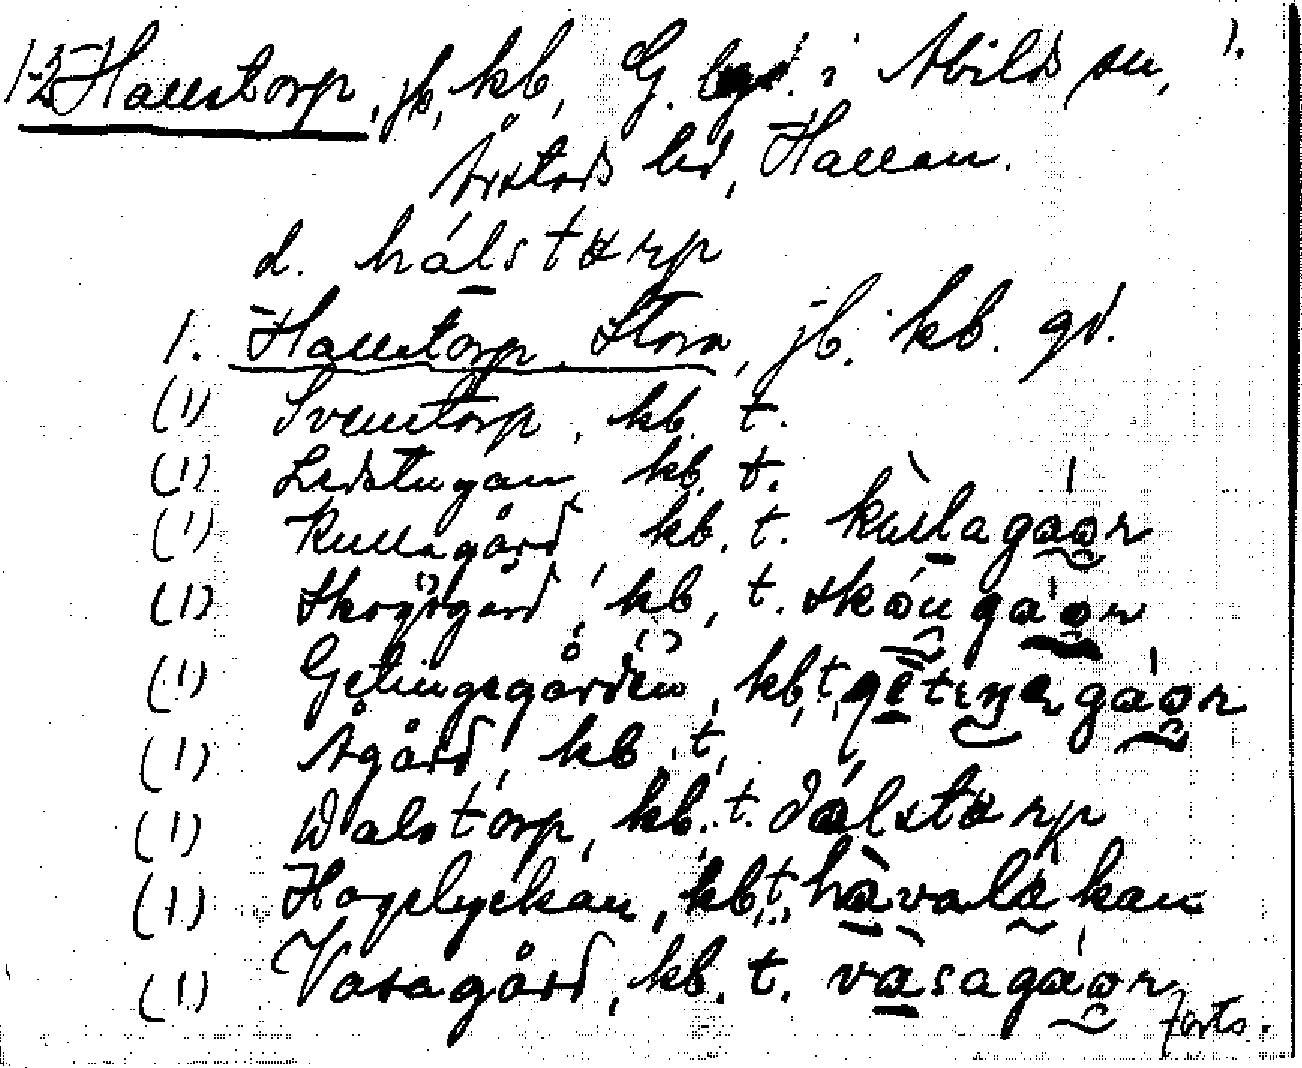 1.
1-2 Hallstorp, jb, kb, G. byd. i Abilds sn,
Årstads hd, Halland.
d. hálstorp
1. Hallstorp, Stora, jb. kb. gd.
(1) Svenstorp, kb. t.
(1) Ledstugan, kb. t.
(1) Kullagård, kb. t. kùllagáor
(1) Skogsgård, kb, t. skóugáor
(1) Getingsgården, kb, t.
(1) Ågård, kb, t,
(1) Dalstorp, kb. t. dálstorp
(1) Hagelyckan, kb, t. hàvalækan
(1) Vasagård, kb. t. vàsagáor
forts.